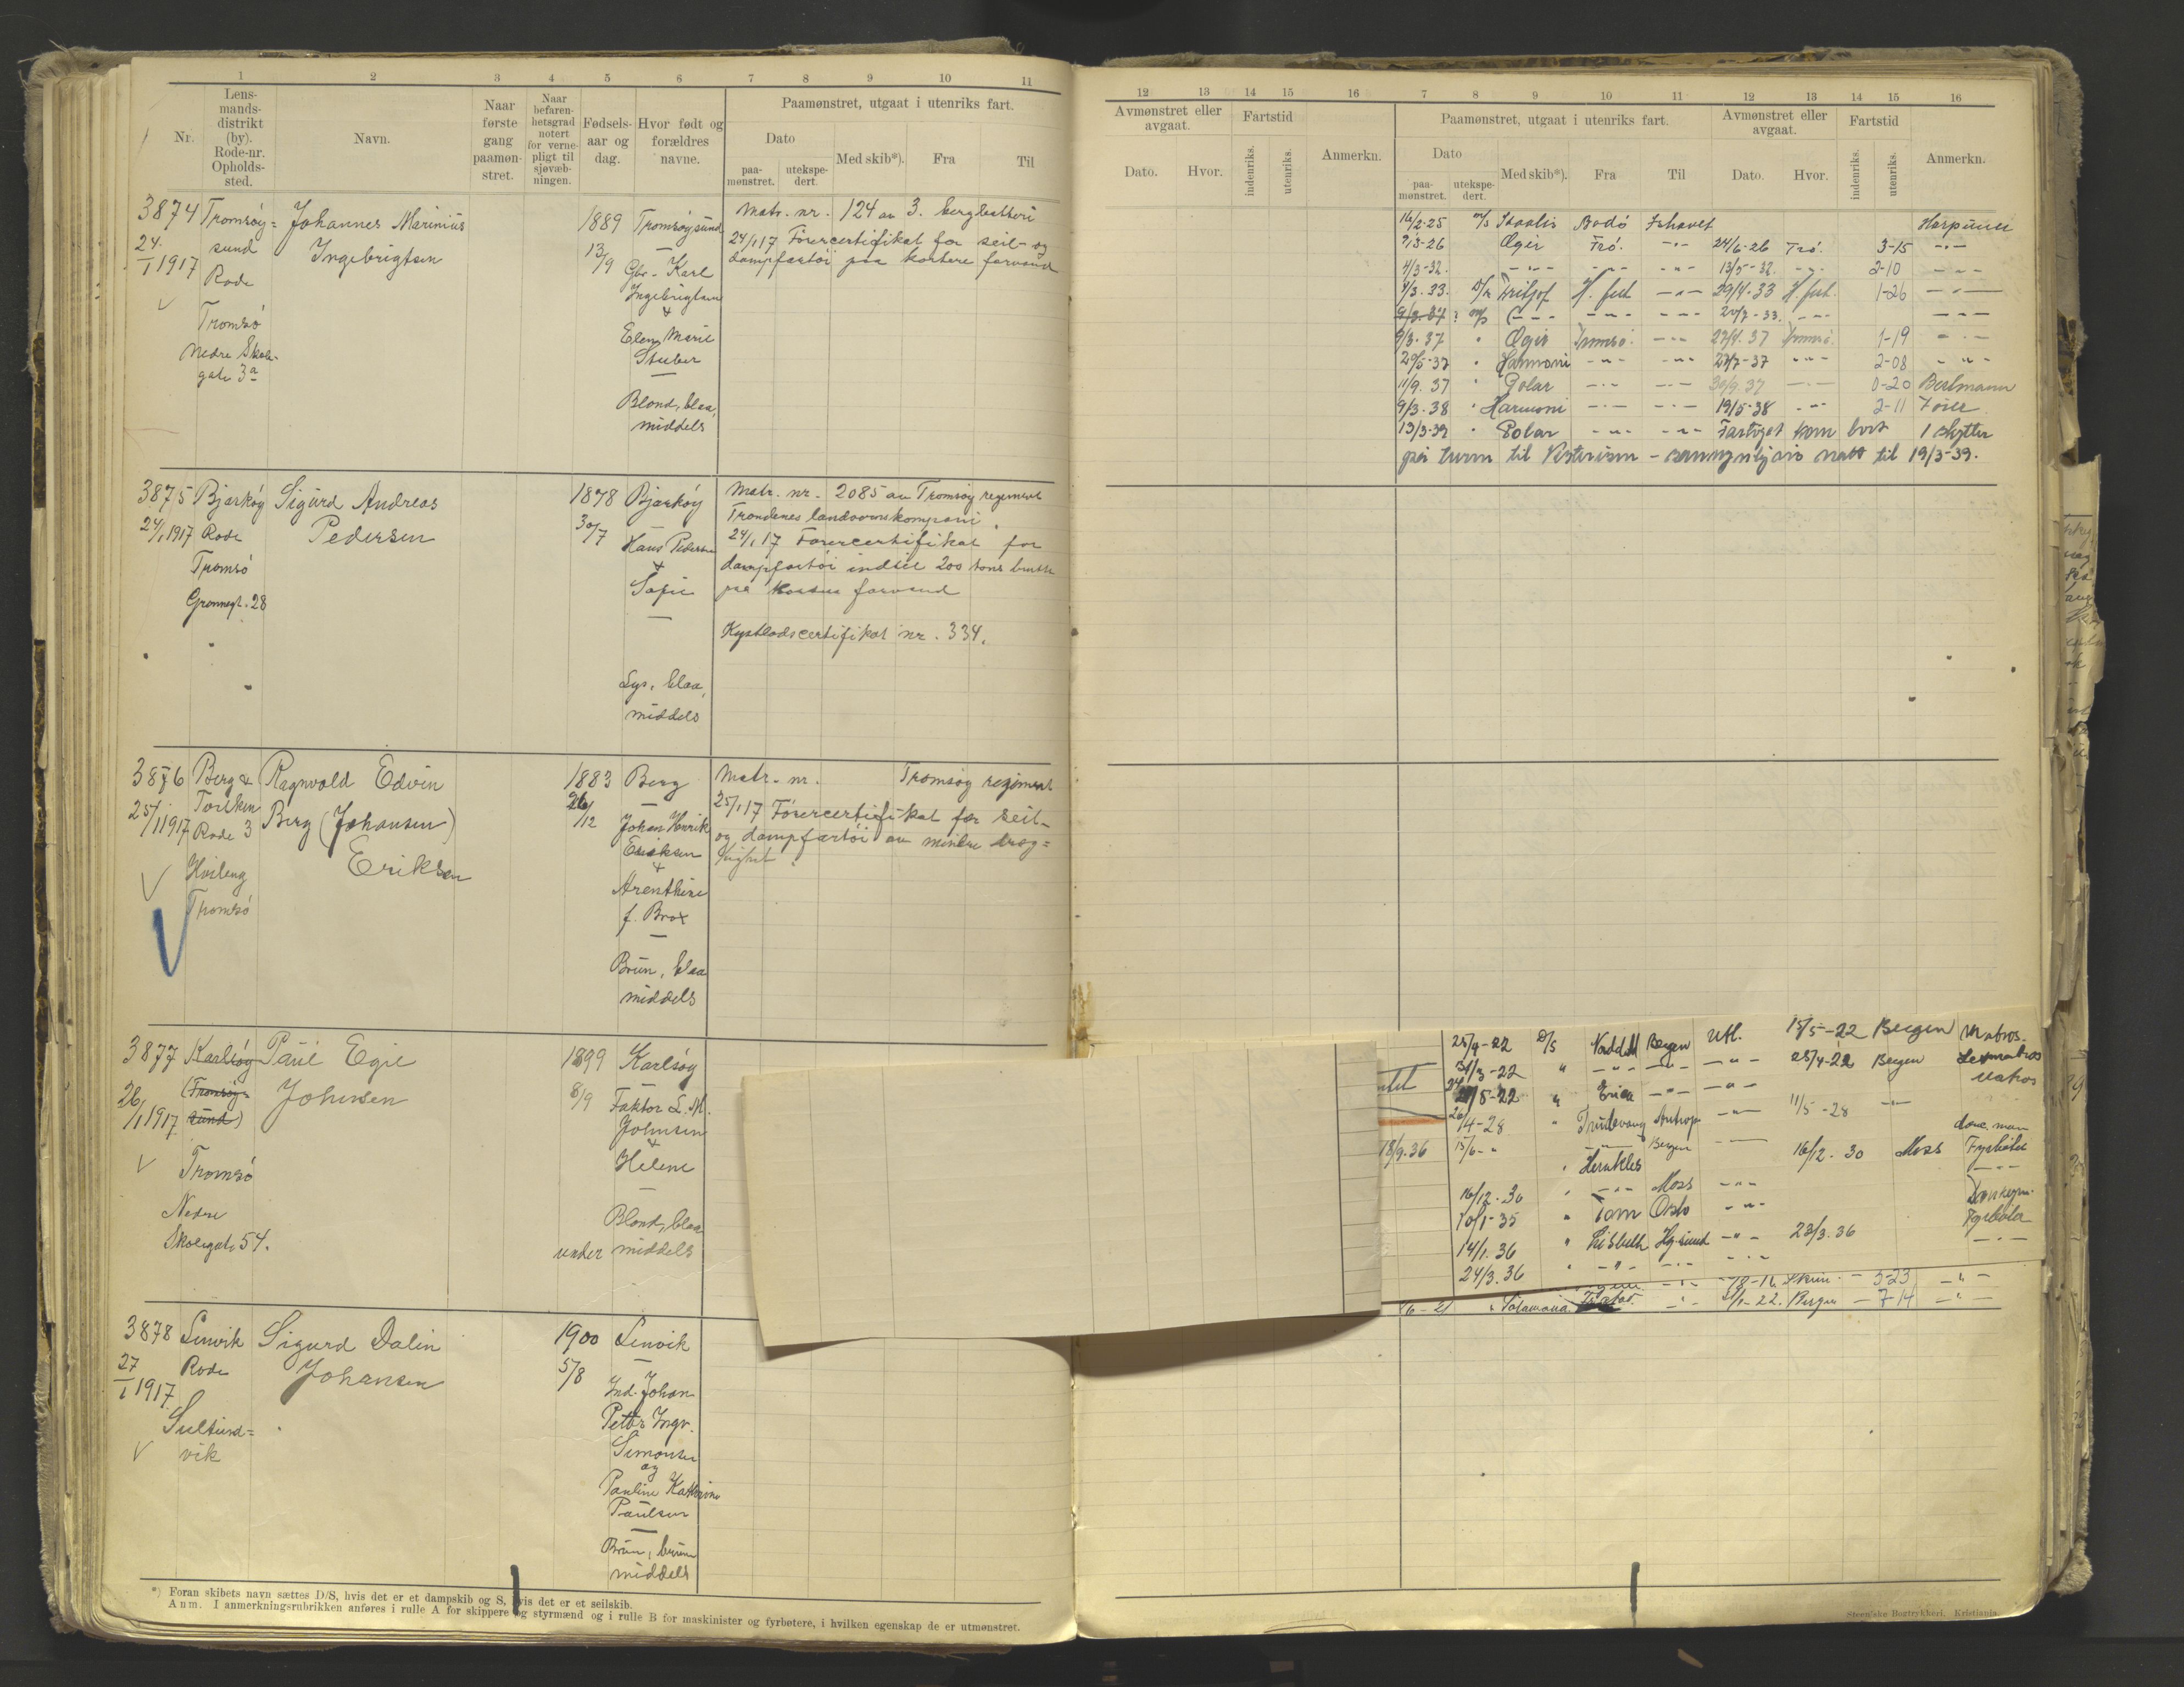 1 2 3 4 5 6 7 8 9 10 11
Nr.
Lens-
mands-
distrikt
(by).
Rode-nr.
Opholds-
sted.
Navn.
Naar
første
gang
paamøn-
stret.
Naar
befaren-
hetsgrad
notert
for verne-
pligt til
sjøvæb-
ningen.
Fødsels-
aar og
dag.
Hvor født og
forældres
navne.
Paamønstret, utgaat i utenriks fart.
Dato
paa-
mønstret.
utekspe-
dert.
Med skib*).
Fra
Til
3874
24/1 1917
Tromsøy=
sund
Rode
Tromsö
Nedre Skole-
gate 3a
Johannes Marinius
Ingebrigtsen
1889
13/9
Tromsøysund
Gbr. Karl
Ingebrigtsen
&
Elen Marie
Stuber
Blond, blaa,
middels
Matr. nr. 124 av 3. bergbatteri
24/1 17 Förercertifikat for seil- og
dampfartöi paa kortere farvand
3875
24/1 1917
Bjarköy
Rode
Tromsö
Grønnegt. 28
Sigurd Andreas
Pedersen
1878
30/7
Bjarköy
Hans Pedersen
&
Sofie
Lys, blaa,
middels
Matr. nr. 2085 av Tromsøy regiment
Trondenes landvernskompani.
24/1 17 Førercertifikat for
dampfartöi indtil 200 tons brutto
paa kortere farvand
Kystlodscertifikat nr. 334.
3876
25/1 1917
Berg &
Torsken
Rode 3
Tromsö
Ragnvald Edvin
Berg (Johansen)
Eriksen
1883
26/12
Berg
Johan Henrik
Eriksen
&
Arenthine
f. Brox
Brun, blaa
middels
Matr. nr. Tromsøy regiment
25/1 17 Förercertifikat for seil-
og dampfartöi av mindre dræg=
tighet.
3877
26/1 1917
Karlsöy
(Tromsöy=
sund)
Tromsö
Nedre
Skolegate 54.
Paul Egil
Johnsen
1899
8/9
Karlsöy
Faktor L. M.
Johnsen
&
Helene
Blond, blaa
under middels
3878
27/1 1917
Lenvik
Rode
vik
Sigurd Dalin
Johansen
1900
5/8
Lenvik
Ind. Johan
Petter Ingv.
Simonsen
og
Pauline Kathrine
Paulsen
Brun, brune
middels
*) Foran skibets navn sættes D/S, hvis det er et dampskib og S, hvis det er et seilskib.
Anm. I anmerkningsrubrikken anføres i rulle A for skippere og styrmænd og i rulle B for maskinister og fyrbøtere, i hvilken egenskap de er utmønstret.
12 13 14 15 16 7 8 9 10 11 12 13 14 15 16
Avmønstret eller
avgaat.
Dato.
Hvor.
Fartstid
indenriks.
utenriks.
Anmerkn.
Paamønstret, utgaat i utenriks fart.
Dato
paa-
mønstret.
utekspe-
dert.
Med skib*).
Fra
Til
Avmønstret eller
avgaat.
Dato.
Hvor.
Fartstid
indenriks.
utenriks.
Anmerkn.
16/2-25 m/s Bodö Ishavet
9/3-26 Øgir Trö. -"- 24/6-26 Trö. 3-15 -"-
4/3-32. -"- -"- -"- 13/5-32. -"- 2-10 -"-
4/3.33. D/s Fritjof H.fest -"- 29/4-33 H.fest. 1-26 -"-
9/3.37 " Øgir Tromsö. -"- 27/4.37 Tromsö. 1-19 -"-
20/5-37 " Harmoni -"- -"- 27/7-37 -"- 2-08 -"-
11/9.37 " Polar -"- -"- 30/9.37 -"- 0-20
9/3.38 " Harmoni -"- -"- 19/5-38 -"- 2-11
13/3-39 " Polar -"- -"- Fartöyet kom bort 1 skytter
på turen til Vesterisen - natt til 19/3-39.
25/4-22 D/S Bergen Utl. 15/5-22 Bergen Matros.
31/3-22 " -"- -"- -"- 25/4-22 Bergen Letmatros
5-22 " Erica -"- -"- Matros
26/4-28 " -"- 11/5-28 -"-
18/9.36
15/6-" -"- Bergen -"- donk.man
" Herakles 16/12.30 Moss Fyrböter
16/12-30 " -"- Moss -"- -"-
10/1-35 " Tom Oslo -"-
14/1.36 " Lisbeth -"- 23/3.36 Fyrböter
24/3.36 " -"- -"- -"- -"-
-22. Bergen - 7 14 -"-
Steen'ske Bogtrykkeri. Kristiania.